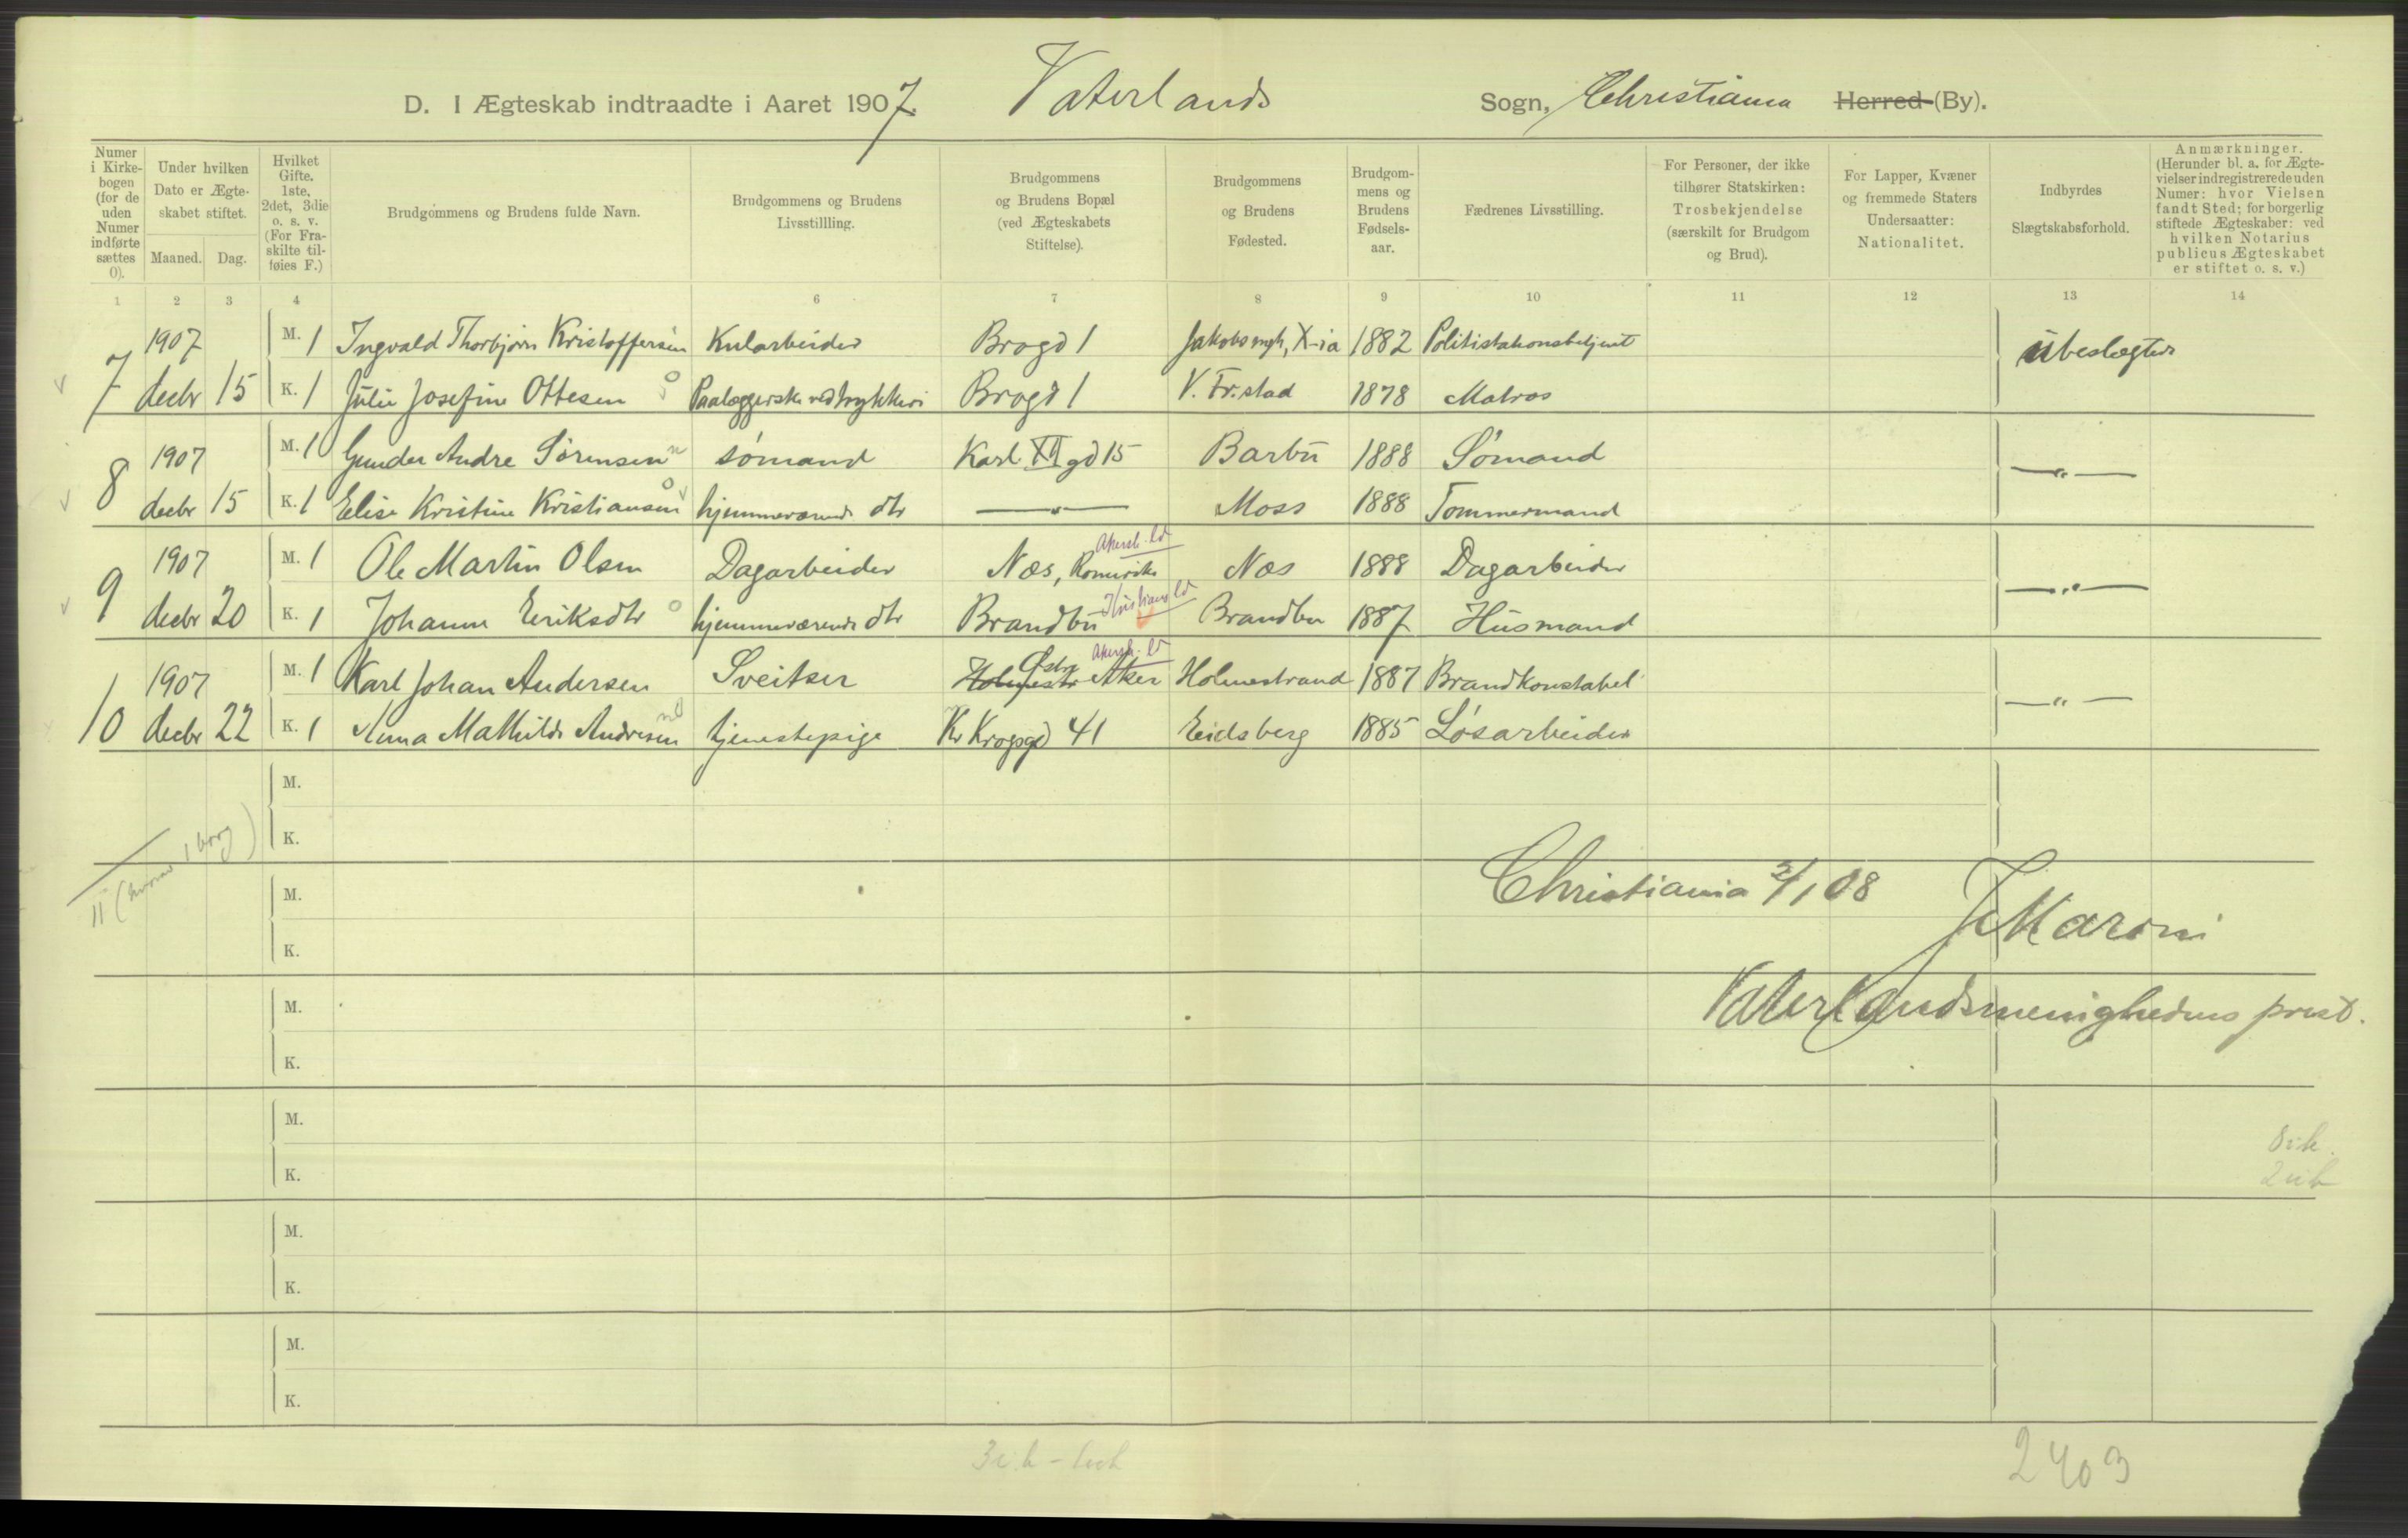 D. I Ægteskab indtraadte i Aaret 1907. Vaterlands Sogn, Christiania Herred (By).
Numer i Kirkebogen (for de uden Numer indførte sættes 0).
Under hvilken Dato er Ægteskabet stiftet.
Maaned. Dag.
Hvilket Gifte. 1ste, 2det, 3die o. s. v. (For Fraskilte tilføies F.)
Brudgommens og Brudens fulde Navn.
Brudgommens og Brudens Livsstillling.
Brudgommens og Brudens Bopæl (ved Ægteskabets Stiftelse).
Brudgommens og Brudens Fødested.
Brudgommens og Brudens Fødselsaar.
Fædrenes Livsstilling.
For Personer, der ikke tilhører Statskirken: Trosbekjendelse (særskilt for Brudgom og Brud).
For Lapper, Kvæner og fremmede Staters Undersaatter: Nationalitet.
Indbyrdes Slægtskabsforhold.
Anmærkninger. (Herunder bl. a. for Ægtevielser indregistrerede uden Numer: hvor Vielsen fandt Sted; for borgerlig stiftede Ægteskaber: ved hvilken Notarius publicus Ægteskabet er stiftet o. s. v.)
1 2 3 4 6 7 8 9 10 11 12 13 14
7 1907 M. 1 Ingvald Thorbjørn Kristoffersen Kularbeider Brogd 1 Jakobs mgh, X-ia 1882 Politistationsbetjent Ubeslægtede
decbr 15 K. 1 Julie Josefine Ottesen Paalæggerske ved trykkeri Brogd 1 V. Fr.stad 1878 Matros
8 1907 M. 1 Gunder Andre Sørensen sømand Karl XII gd 15 Barbu 1888 Sømand —"—
decbr 15 K. 1 Elise Kristine Kristiansen hjemmeværende dtr —"— Moss 1888 Tømmermand
9 1907 M. 1 Ole Martin Olsen Dagarbeider Næs, Romerike Akersh. Næs 1888 Dagarbeider —"—
decbr 20 K. 1 Johanne Eriksdtr hjemmeværende dtr Brandbu Brandbu 1887 Husmand
10 1907 M. 1 Karl Johan Andersen Sveitser Holmestr Østre Aker Akersh. Holmestrand 1887 Brandkonstabel —"—
decbr 22 K. 1 Anna Mathilde Andresen tjenestepige Kr Krogsgd 41 Eidsberg 1885 Løsarbeider
M.
K.
11 (hvoraf 1 borg)
M.
K.
Christiania 2/1 08
J Maroni
Vaterlandsmenighedens prest.
M.
K.
M.
K.
M.
K.
M.
K.
2403